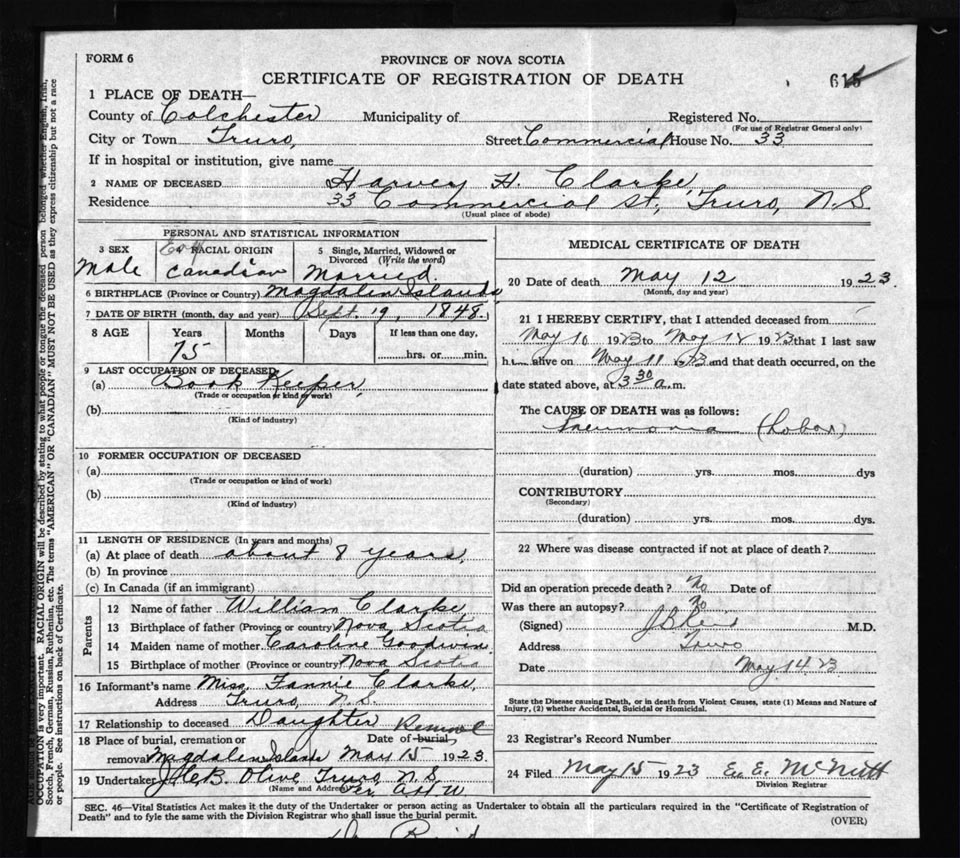 FORM 6
PROVINCE OF NOVA SCOTIA
CERTIFICATE OF REGISTRATION OF DEATH
615
1 PLACE OF DEATH—
County of Colchester Municipality of Registered No.
(For use of Registrar General only)
City or Town Truro, Street Commercial House No. 33
If in hospital or institution, give name
2 NAME OF DECEASED Harvey H. Clarke
Residence 33 Commercial St., Truro, N.S.
(Usual place of abode)
PERSONAL AND STATISTICAL INFORMATION
3 SEX Male
RACIAL ORIGIN Canadian
5 Single, Married, Widowed or Divorced (Write the word) Married.
6 BIRTHPLACE (Province or Country) Magdalen Islands
7 DATE OF BIRTH (month, day and year) Sept. 19, 1848.
8 AGE Years Months Days If less than one day,
75 hrs. or min.
9 LAST OCCUPATION OF DECEASED
(a) Book Keeper,
(Trade or occupation or kind of work)
(b)
(Kind of industry)
10 FORMER OCCUPATION OF DECEASED
(a)
(Trade or occupation or kind of work)
(b)
(Kind of industry)
11 LENGTH OF RESIDENCE (In years and months)
(a) At place of death about 8 years,
(b) In province
(c) In Canada (if an immigrant)
Parents
12 Name of father William Clarke,
13 Birthplace of father (Province or country) Nova Scotia
14 Maiden name of mother Caroline Goodwin.
15 Birthplace of mother (Province or country) Nova Scotia
16 Informant's name Miss. Fannie Clarke,
Address Truro, N.S.
17 Relationship to deceased Daughter
18 Place of burial, cremation or Date of burial,
removal Magdalen Islands May 15 1923.
19 Undertaker B. Olive Truro N.S.
(Name and Address)
MEDICAL CERTIFICATE OF DEATH
20 Date of death May 12 1923.
(Month, day and year)
21 I HEREBY CERTIFY, that I attended deceased from
May 10 1923 to May 12 1923 that I last saw
h alive on May 11 and that death occurred, on the
date stated above, at 3 30 a.m.
The CAUSE OF DEATH was as follows:
Pneumonia (Lobar)
(duration) yrs. mos. dys
CONTRIBUTORY
(Secondary)
(duration) yrs. mos. dys.
22 Where was disease contracted if not at place of death?
Did an operation precede death? No Date of
Was there an autopsy? No
(Signed) M.D.
Address Truro
Date May 14 23
State the Disease causing Death, or in death from Violent Causes, state (1) Means and Nature of
Injury, (2) whether Accidental, Suicidal or Homicidal.
23 Registrar's Record Number
24 Filed May 15 1923 E. E. McNutt
Division Registrar
SEC. 46—Vital Statistics Act makes it the duty of the Undertaker or person acting as Undertaker to obtain all the particulars required in the "Certificate of Registration of
Death" and to fyle the same with the Division Registrar who shall issue the burial permit.
(OVER)
OCCUPATION is very important. RACIAL ORIGIN will be described by stating to what people or tongue the deceased person belonged whether English, Irish,
Scotch, French, German, Russian, Ruthenian, etc. The terms "AMERICAN" OR "CANADIAN" MUST NOT BE USED as they express citizenship but not a race
or people. See instructions on back of Certificate.